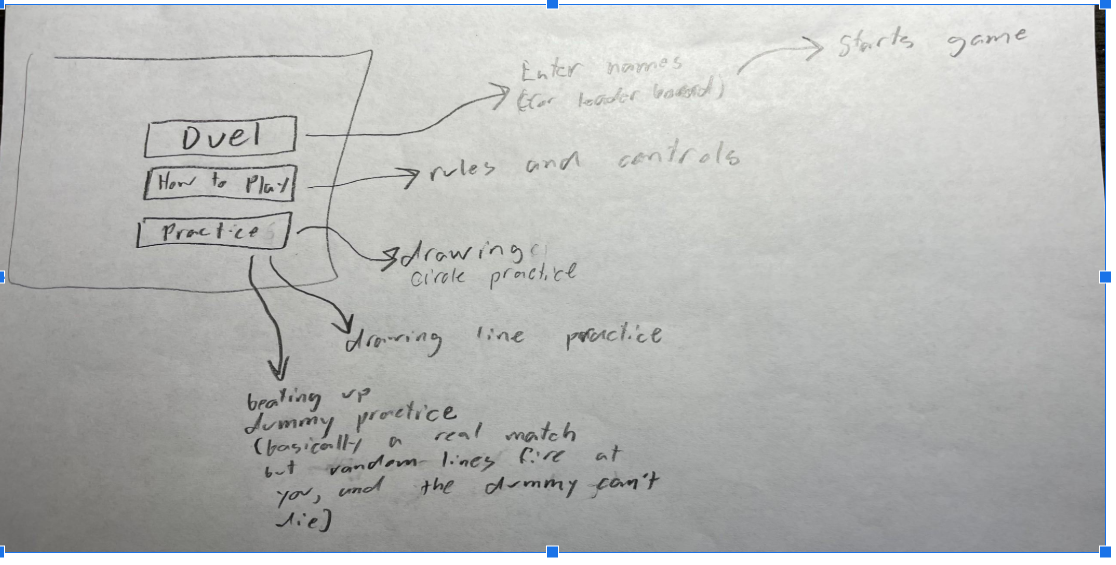 Duel
How to Play
Practice
Enter names
(for leader board)
Starts game
rules and controls
drawing
circle practice
drawing line practice
beating up
dummy practice
(basically a real match
but random lines fire at
you, and the dummy can't
die)